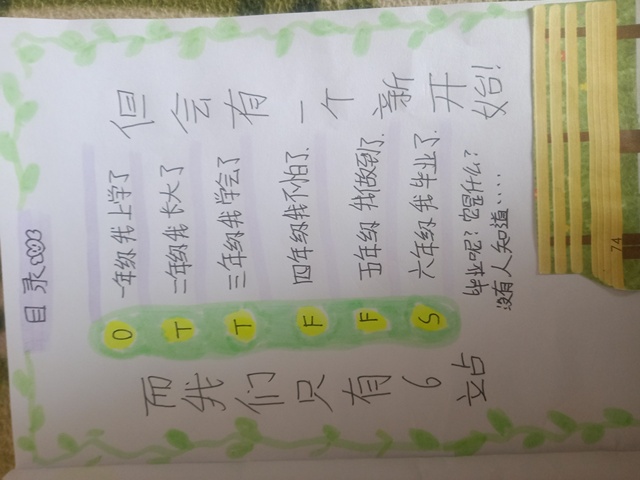 目录
而我们只有6站
O 一年级我上学了
T 二年级我长大了
T 三年级我学会了
F 四年级我不怕了.
F 五年级 我做到了.
S 六年级 我毕业了.
毕业呢？它是什么？
没有人知道....
但会有一个新开始！
74